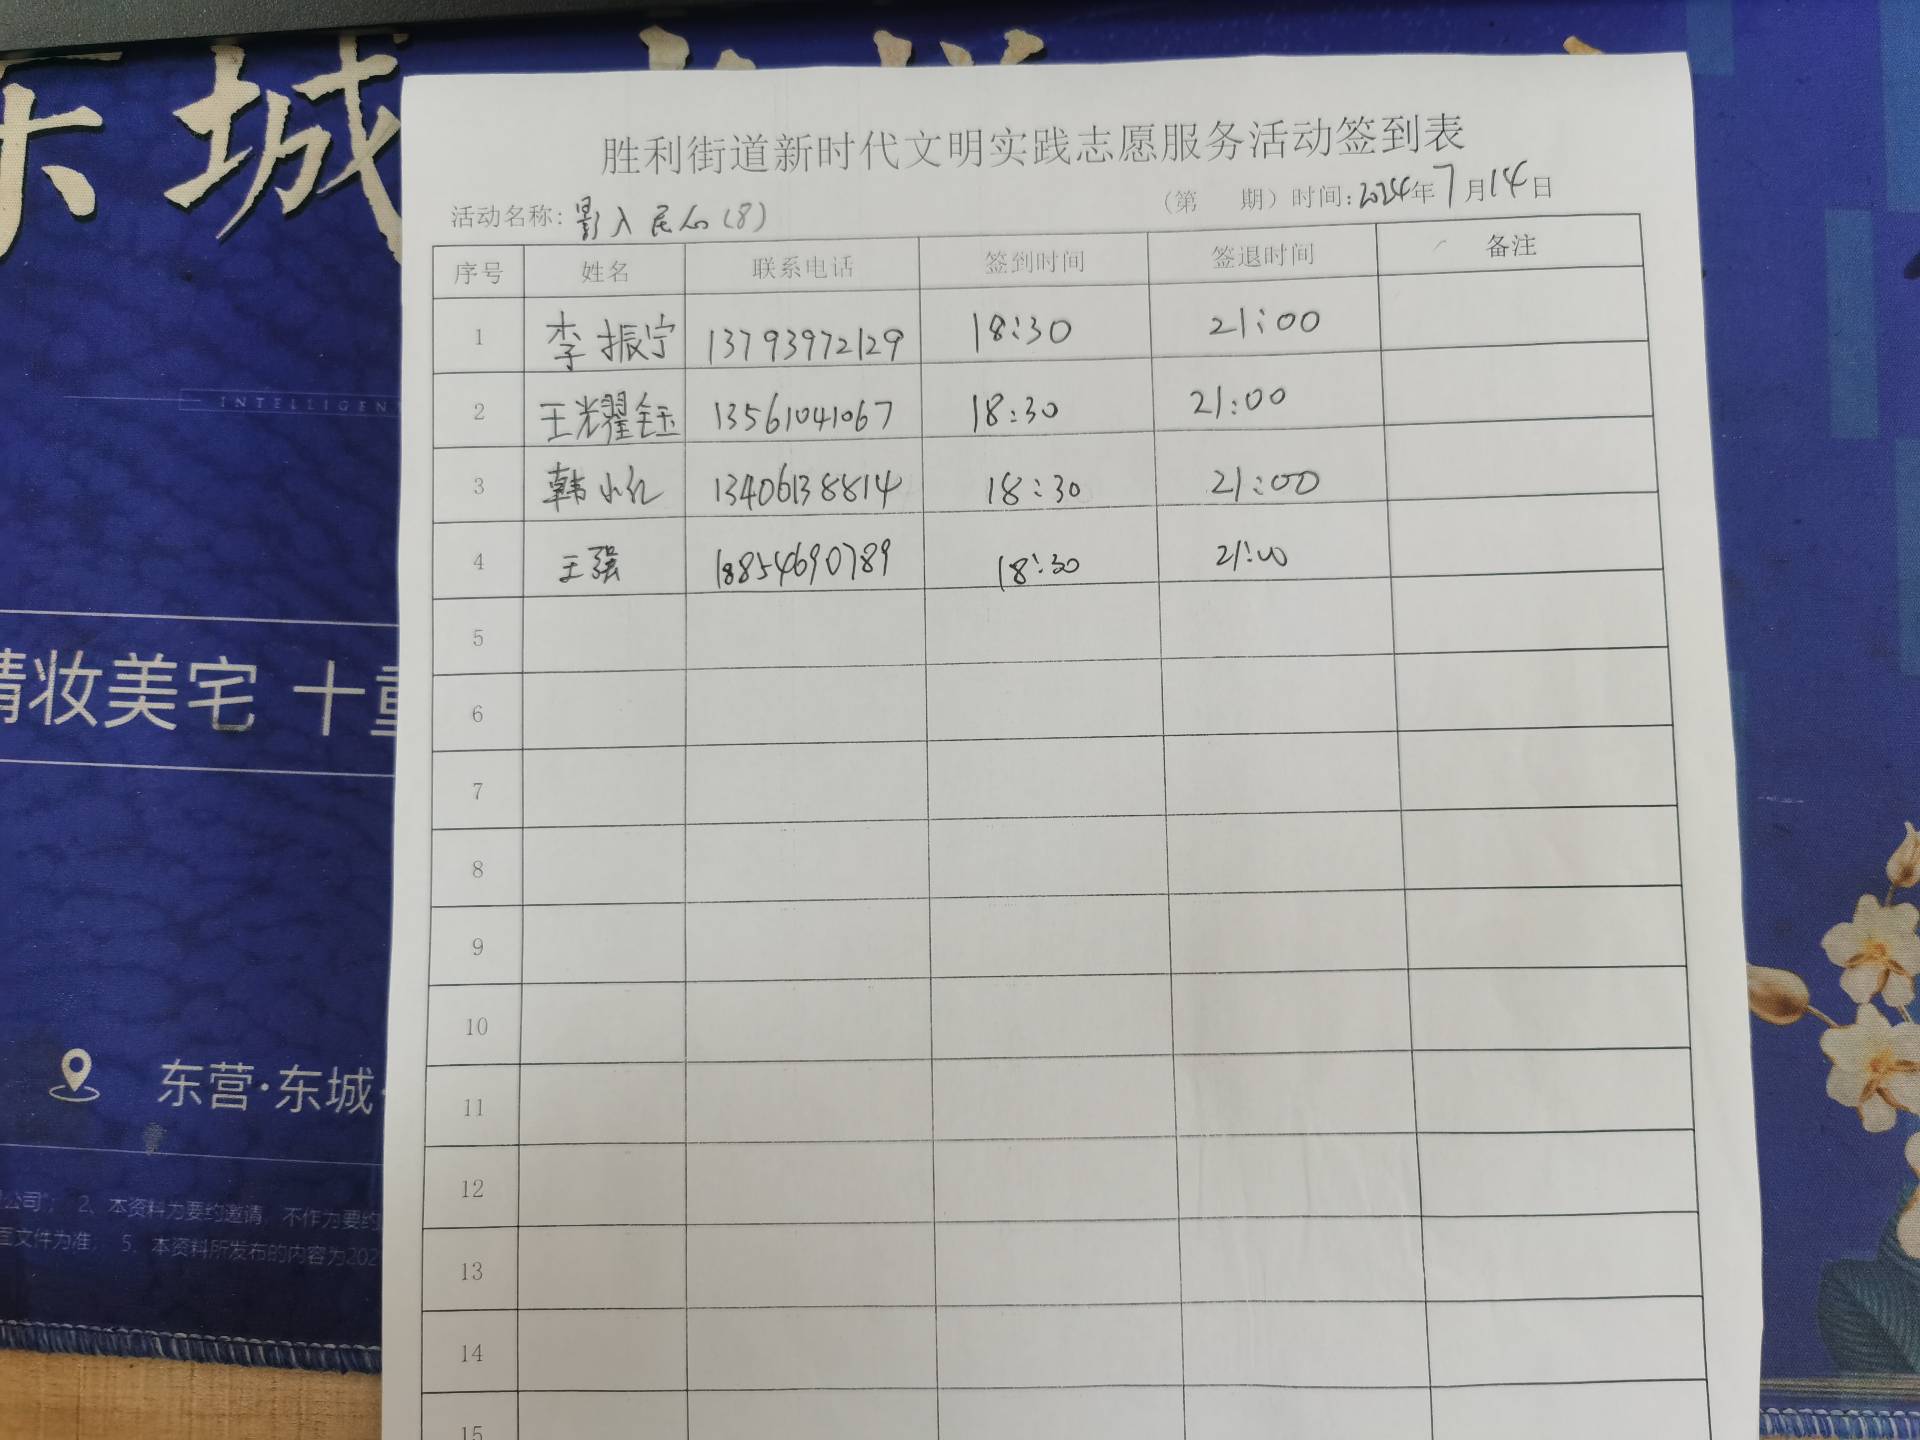 东城
胜利街道新时代文明实践志愿服务活动签到表
活动名称:影入民心(8) (第 期)时间:2024年7月14日
序号 姓名 联系电话 签到时间 签退时间 备注
1 李振宁 13793972129 18:30 21:00
2 王光耀钰 13561041067 18:30 21:00
3 韩小红 13406138814 18:30 21:00
4 王强 18854690789 18:30 21:00
5
6
7
8
9
10
11
12
13
14
15
INTELLIGEN
精妆美宅 十重
东营·东城·
公司"; 2、本资料为要约邀请,不作为要约
文件为准; 5、本资料所发布的内容为202